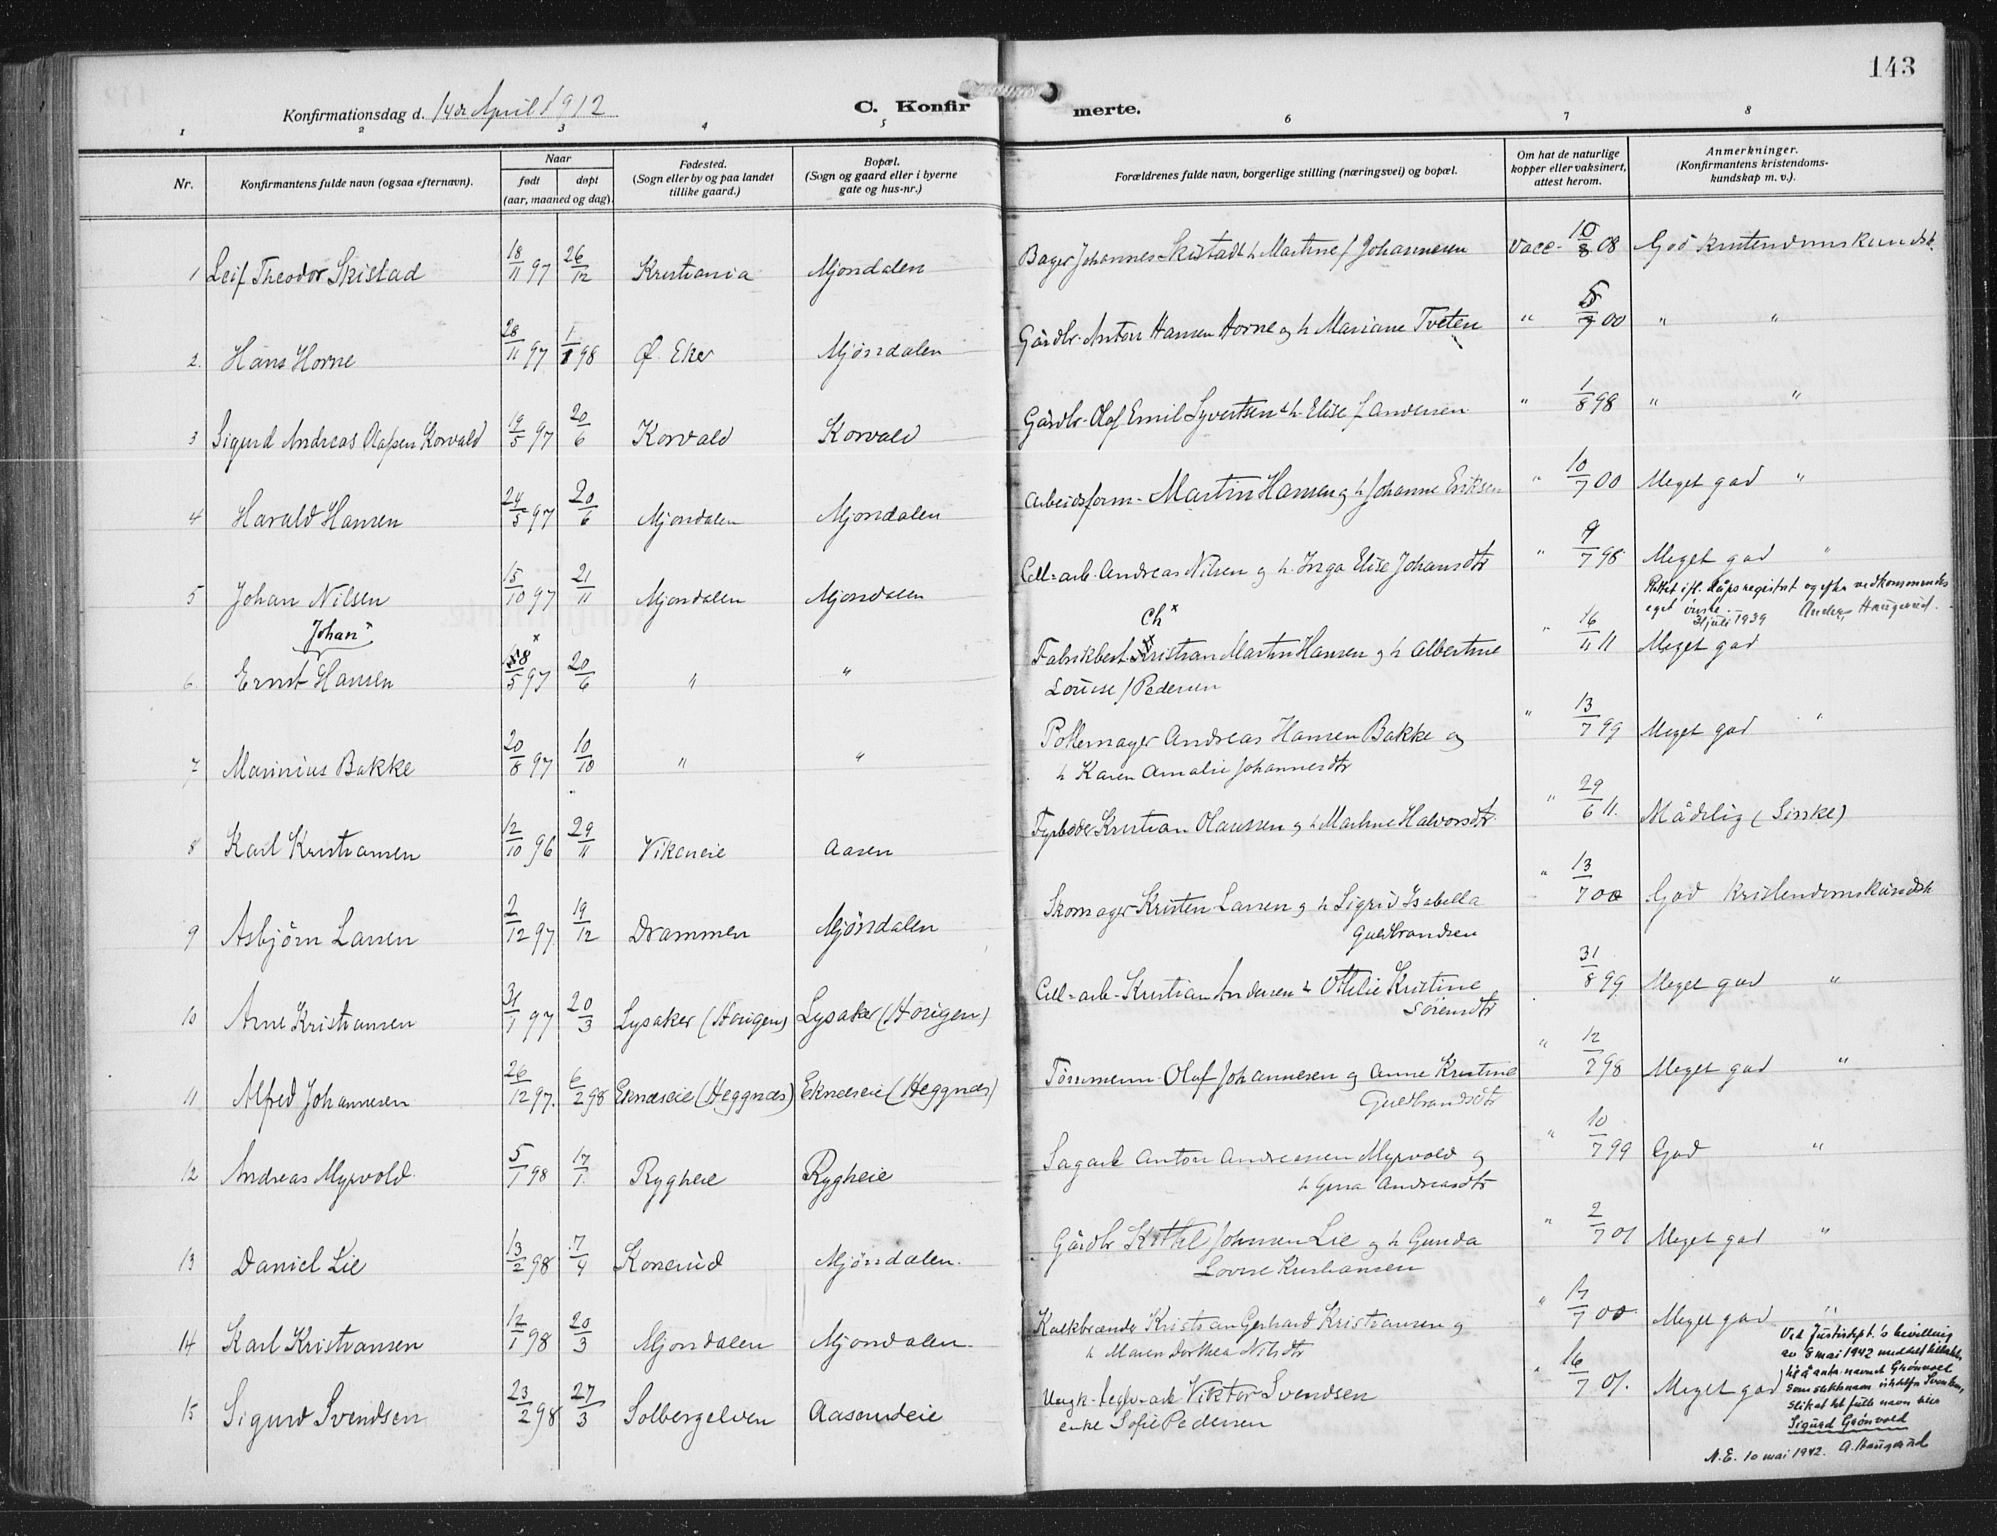 143
Konfirmationsdag d. 14de April 1912
C. Konfirmerte.
1 2 3 4 5 6 7 8
Nr.
Konfirmantens fulde navn (ogsaa efternavn).
Naar
født
døpt
(aar, maaned og dag).
Fødested.
(Sogn eller by og paa landet
tillike gaard.)
Bopæl.
(Sogn og gaard eller i byerne
gate og hus-nr.)
Forældrenes fulde navn, borgerlige stilling (næringsvei) og bopæl.
Om hat de naturlige
kopper eller vaksinert,
attest herom.
Anmerkninger.
(Konfirmantens kristendoms-
kundskap m. v.).
1 Leif Theodor Skistad 18/11 97 26/12 Kristiania Mjøndalen Bager Johannes Skistad & h Martine f Johannesen Vacc. 10/8 08 God kristendomskundsk.
2. Hans Horne 28/11 97 1/1 98 Ø. Eker Mjöndalen Gårdbr. Anton Hansen Horne og h Mariane Tveten " 5/7 00 " "
3 Sigurd Andreas Olafsen Korvald 19/5 97 20/6 Korvald Korvald Gårdbr. Olaf Emil Syvertsen & h. Elise f Andersen " 1/8 98 " "
4 Harald Hansen 24/5 97 20/6 Mjøndalen Mjøndalen Arbeidsform. Martin Hansen og h Johanne Eriksen " 10/7 00 Meget god "
5 Johan Nilsen 15/10 97 21/11 Mjøndalen Mjøndalen Cell=arb. Andreas Nilsen og h. Inga Elise Johansdtr " 9/7 98. Meget god "
Rettet ifl. dåpsregistret og efter vedkommendes
eget önske.
31 juli 1939 Anders Haugerud.
Johan x
6. Ernst Hansen 18/5 97 x 20/6 " " Fabrikbest. Kristian Martin Hansen og h Albertine " 16/11 11 Meget god
Ch x
Louise f Pedersen
7 Marinius Bakke 20/8 97 10/10 " " Pottemager Andreas Hansen Bakke og " 13/7 99 Meget god "
h Karen Amalie Johannesdtr
8 Karl Kristiansen 12/10 96 29/11 Vikeneie Aasen Fyrbøder Kristian Olaussen og h Marthine Halvorsdtr. " 29/6 11. Mådelig (Sinke)
9 Asbjörn Larsen 2/12 97 19/12 Drammen Mjöndalen Skomager Kristen Larsen og h Sigrid Isabella " 13/7 00 God kristendomskundsk
Guldbrandsen
10 Arne Kristiansen 31/1 97 20/3 Lysaker (Horigen) Lysaker (Horigen) Cell=arb. Kristian Andersen & Othilie Kristine 31/8 99 Meget god "
Sörensdtr
11 Alfred Johannesen 26/12 97. 6/2 98 Eknæseie (Heggnæs) Eknæseie (Heggnæs) Tömmerm. Olaf Johannesen og Anne Kristine " 12/7 98 Meget god "
Guldbrandsdtr
12 Andreas Myrvold. 5/1 98 17/7 Rygheie Rygheie Sagarb Anton Andreasen Myrvold og " 10/7 99 God "
h Gina Andreasdtr
13 Daniel Lie 13/2 98 7/4 Konerud Mjöndalen. Gårdbr Kittel Johnsen Lie og h Gunda " 2/7 01 Meget god "
Lovise Kristiansen
14 Karl Kristiansen 12/1 98 20/3 Mjøndalen Mjøndalen. Kalkbrænder Kristian Gerhard Kristiansen og " 17/7 00. Meget god "
h Maren Dorthea Nilsdtr
15 Sigurd Svendsen 23/2 98 27/3 Solbergelven Aasendeie Viktor Svendsen " 16/7 01. Meget god
enke Sofie Pedersen
Ved Justisdpt.'s bevilling
av 8 mai 1942
til å anta navnet Grönvold
som slektsnavn istedenfor Svendsen,
slik at det fulle navn blir
Sigurd Grönvold
N.E. 10 mai 1942. A. Haugerud